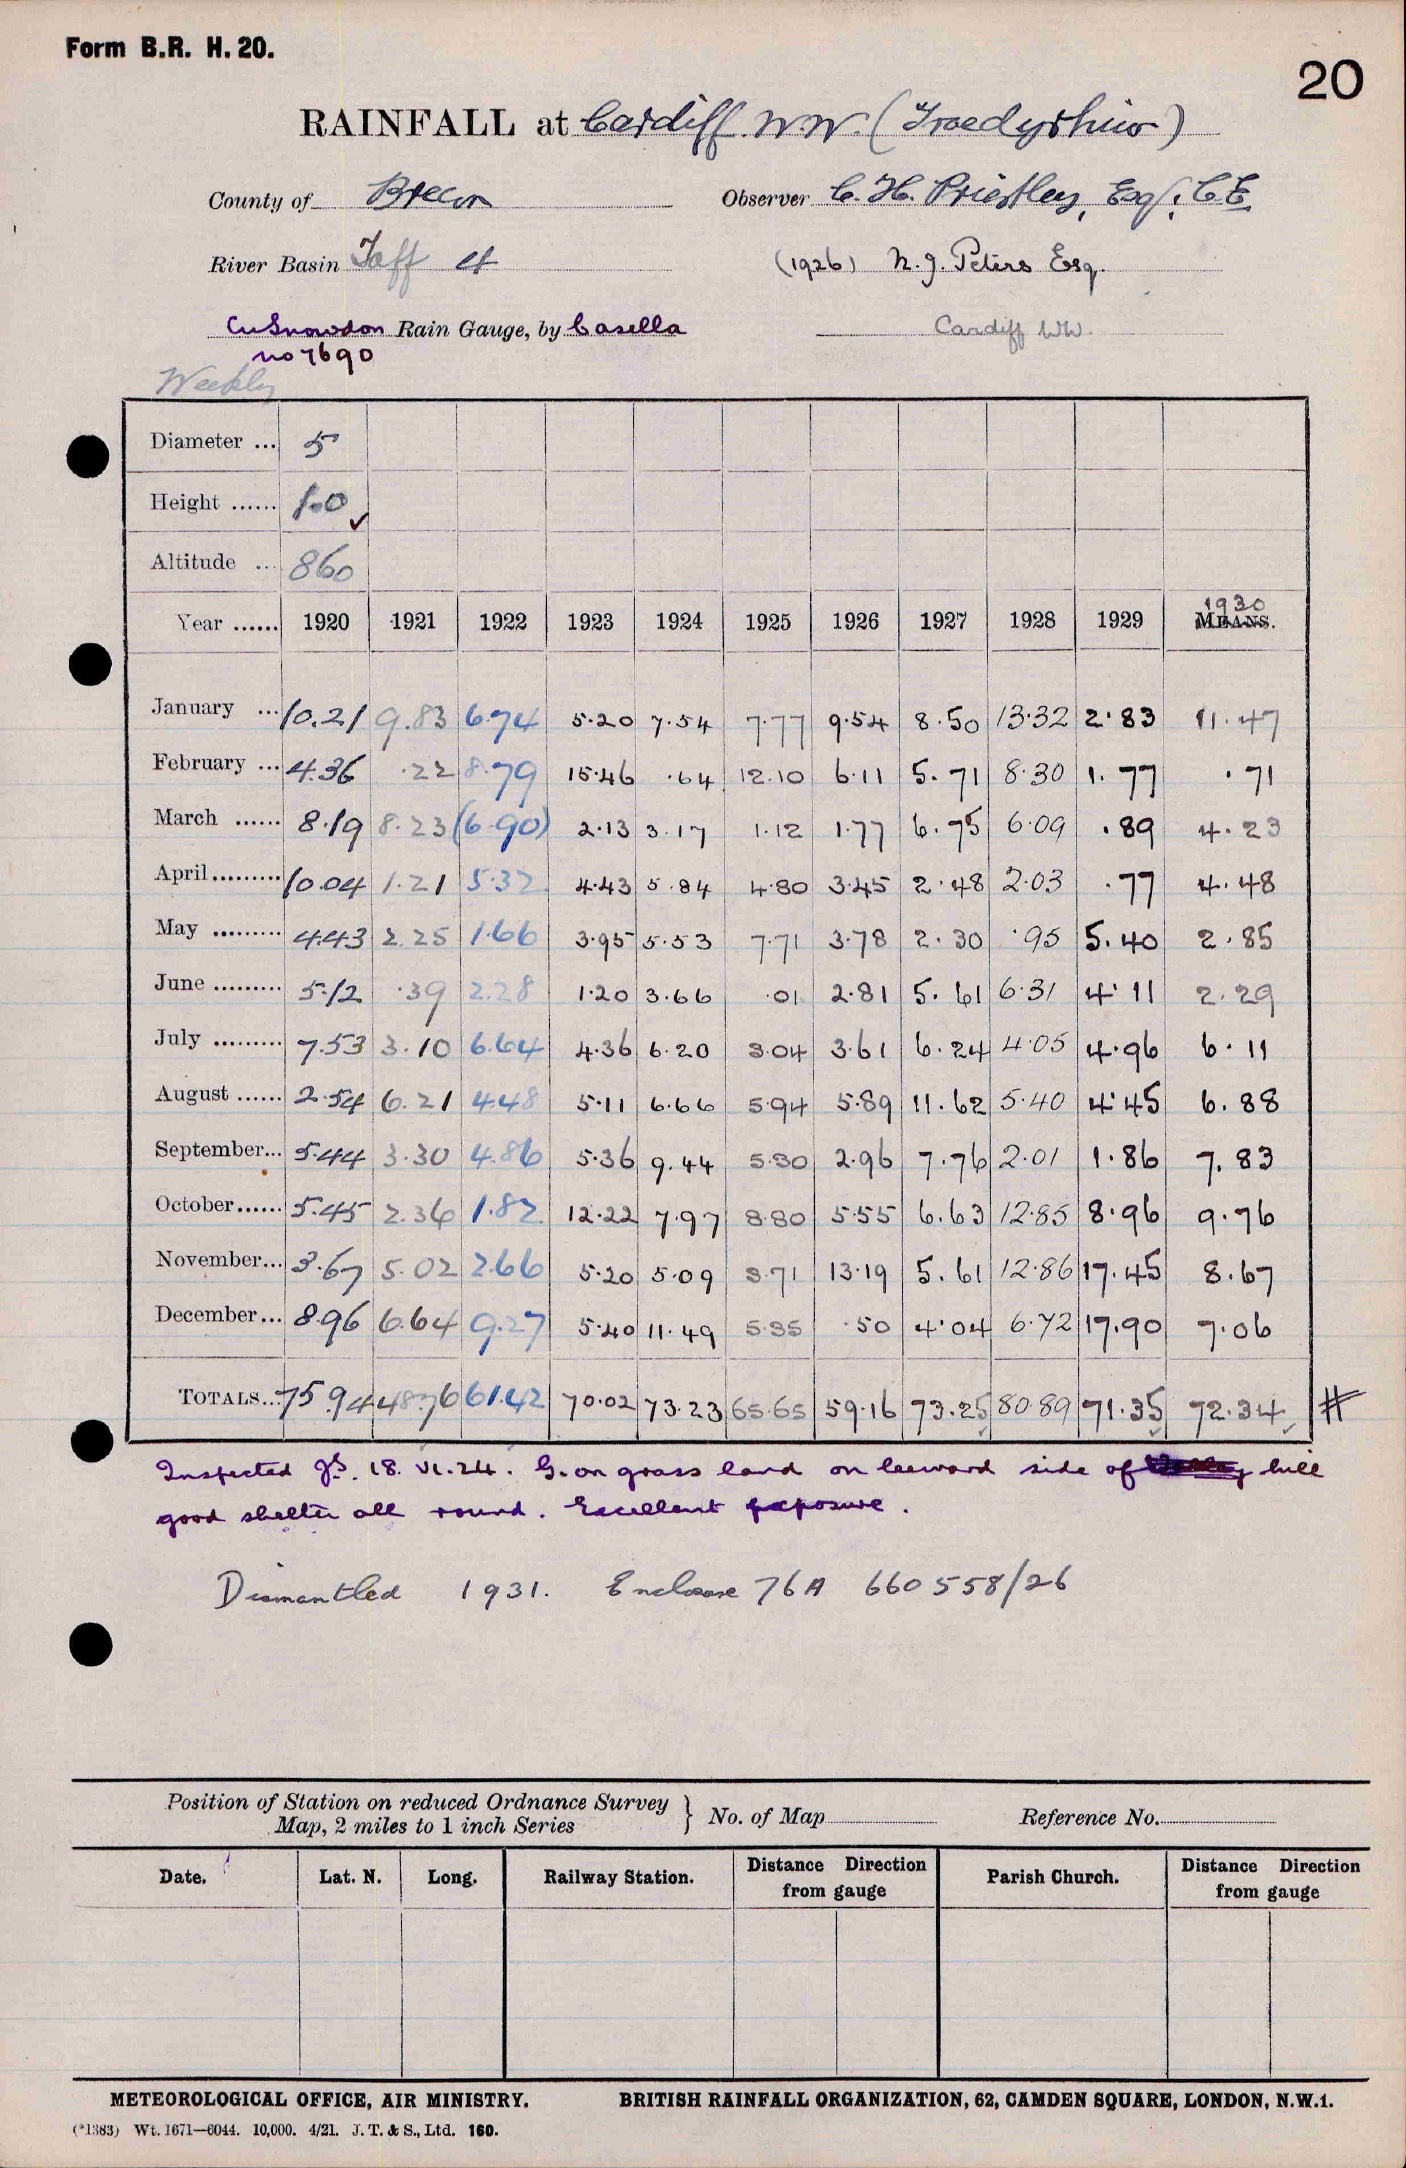 Form B.R. H. 20.
20
RAINFALL at Cardiff W.W. (Troedyrhiw)
County of Brecon Observer C. H. Priestley, Esq., C.E.
River Basin Taff (1926) N. J. Peters Esq.
Cu Snowdon Rain Gauge, by Casella Cardiff WW.
no 7690
Weekly
Diameter ... 5
Height ...... 1.0 ✓
Altitude ... 860
1930
Year ...... 1920 1921 1922 1923 1924 1925 1926 1927 1928 1929 MEANS.
January ... 10.21 9.83 6.74 5.20 7.54 7.77 9.54 8.50 13.32 2.83 11.47
February ... 4.36 .22 8.79 15.46 .64 12.10 6.11 5.71 8.30 1.77 .71
March ...... 8.19 8.23 (6.90) 2.13 3.17 1.12 1.77 6.75 6.09 .89 4.23
April......... 10.04 1.21 5.32 4.43 5.84 4.80 3.45 2.48 2.03 .77 4.48
May ......... 4.43 2.25 1.66 3.95 5.53 7.71 3.78 2.30 .95 5.40 2.85
June ......... 5.12 .39 2.28 1.20 3.66 .01 2.81 5.61 6.31 4.11 2.29
July ......... 7.53 3.10 6.64 4.36 6.20 3.04 3.61 6.24 4.05 4.96 6.11
August ...... 2.54 6.21 4.48 5.11 6.66 5.94 5.89 11.62 5.40 4.45 6.88
September... 5.44 3.30 4.86 5.36 9.44 5.30 2.96 7.76 2.01 1.86 7.83
October...... 5.45 2.36 1.82 12.22 7.97 8.80 5.55 6.63 12.85 8.96 9.76
November... 3.67 5.02 2.66 5.20 5.09 3.71 13.19 5.61 12.86 17.45 8.67
December... 8.96 6.64 9.27 5.40 11.49 5.35 .50 4.04 6.72 17.90 7.06
TOTALS... 75.94 48.76 61.42 70.02 73.23 65.65 59.16 73.25 80.89 71.35 72.34 #
Inspected 18. VI. 24. G. on grass land on leeward side of hill
good shelter all round. Excellent exposure.
Dismantled 1931. Enclosure 76A 660558/26
Position of Station on reduced Ordnance Survey } No. of Map Reference No.
Map, 2 miles to 1 inch Series
Date. Lat. N. Long. Railway Station. Distance Direction Parish Church. Distance Direction
from gauge from gauge
METEOROLOGICAL OFFICE, AIR MINISTRY. BRITISH RAINFALL ORGANIZATION, 62, CAMDEN SQUARE, LONDON, N.W.1.
(*1383) Wt. 1671—6044. 10,000. 4/21. J. T. & S., Ltd. 160.